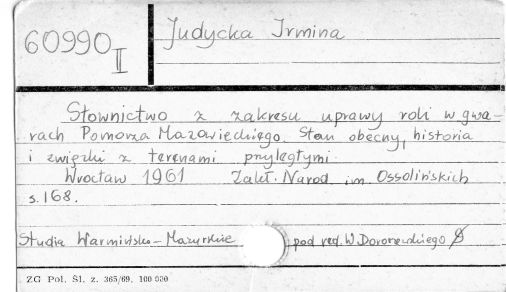 60990 II
Judycka Irmina
Słownictwo z zakresu uprawy roli w gwa-
rach Pomorza Mazowieckiego. Stan obecny, historia
i związki z terenami przyległymi.
Wrocław 1961 Zakł. Narod. im. Ossolińskich
s. 168.
Studia Warmińsko-Mazurskie pod red. W. Doroszewskiego 8
ZG Pol. Śl. z. 365/69. 100 000